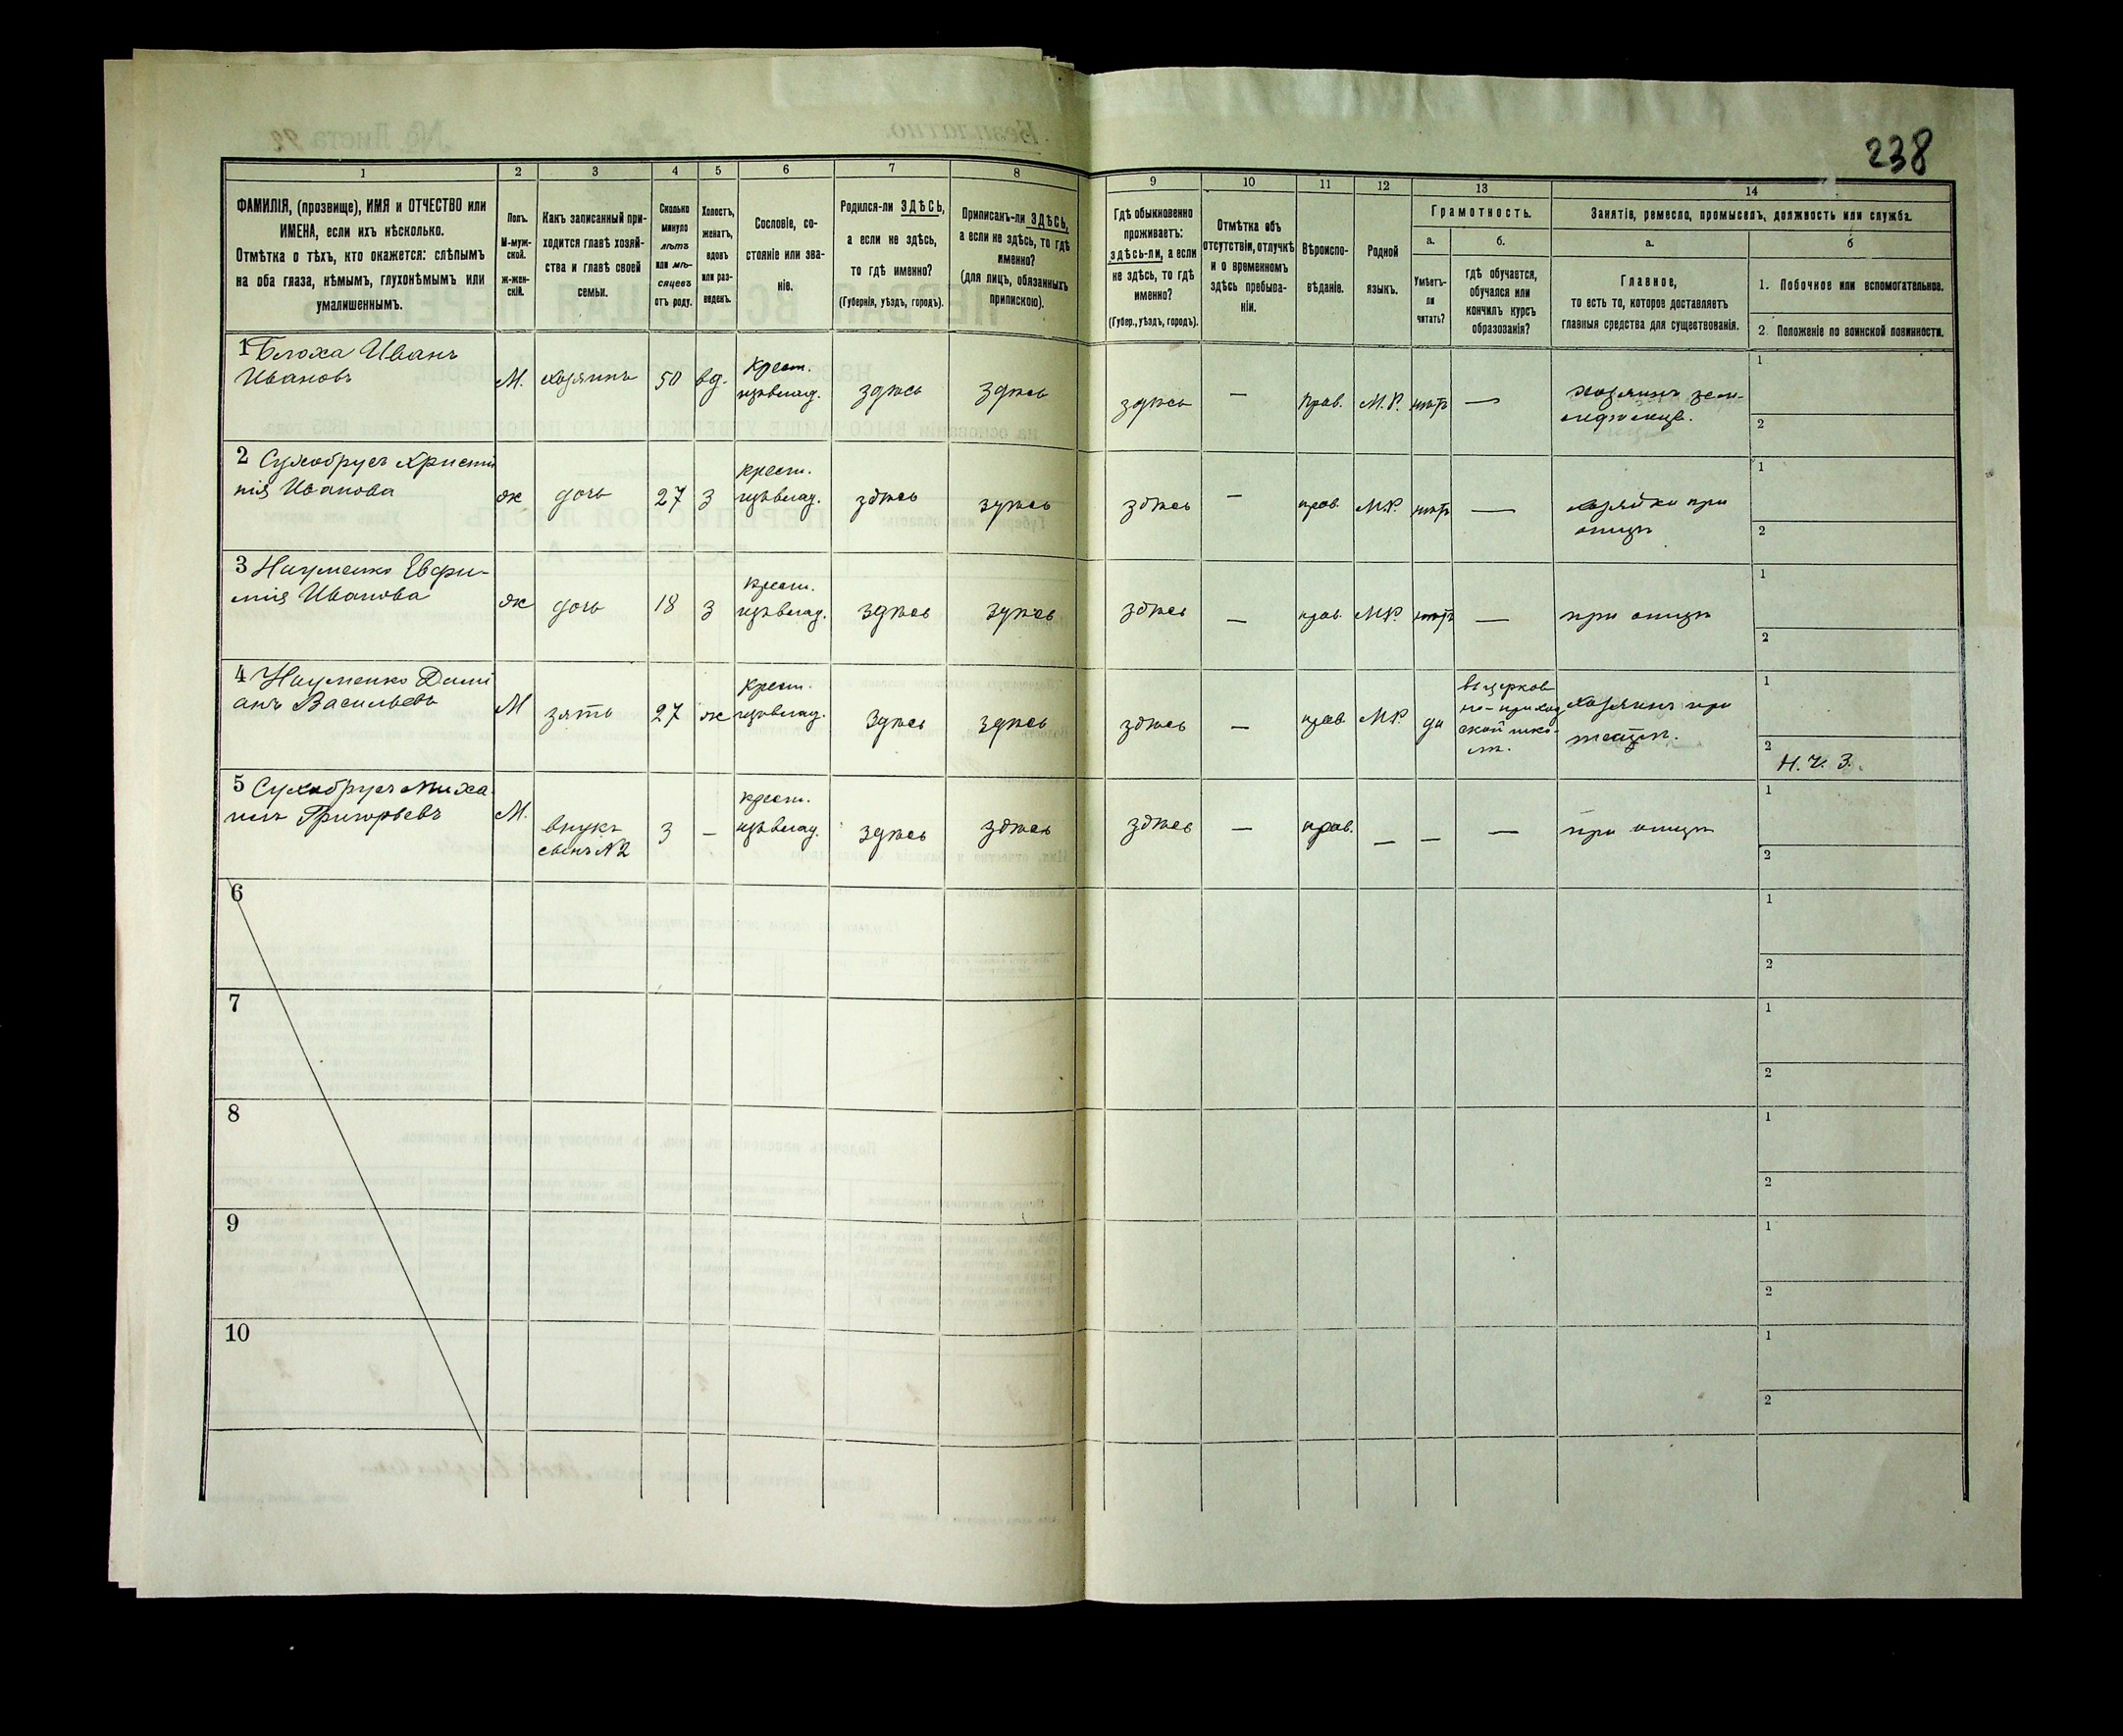 238
1 2 3 4 5 6 7 8 9 10 11 12 13 14
ФАМИЛІЯ, (прозвище), ИМЯ и ОТЧЕСТВО или
ИМЕНА, если ихъ нѣсколько.
Отмѣтка о тѣхъ, кто окажется: слѣпымъ
на оба глаза, нѣмымъ, глухонѣмымъ или
умалишеннымъ.
Полъ.
М-муж-
ской.
ж-жен-
скій.
Какъ записанный при-
ходится главѣ хозяй-
ства и главѣ своей
семьи.
Сколько
минуло
лѣтъ
или мѣ-
сяцевъ
отъ роду.
Холостъ,
женатъ,
вдовъ
или раз-
веденъ.
Сословіе, со-
стояніе или зва-
ніе.
Родился-ли ЗДѢСЬ,
а если не здѣсь,
то гдѣ именно?
(Губернія, уѣздъ, городъ).
Приписанъ-ли ЗДѢСЬ,
а если не здѣсь, то гдѣ
именно?
(для лицъ, обязанныхъ
припискою).
Гдѣ обыкновенно
проживаетъ:
здѣсь-ли, а если
не здѣсь, то гдѣ
именно?
(Губер., уѣздъ, городъ).
Отмѣтка объ
отсутствіи, отлучкѣ
и о временномъ
здѣсь пребыва-
ніи.
Вѣроиспо-
вѣданіе.
Родной
языкъ.
Грамотность.
а.
Умѣетъ-
ли
читать?
б.
гдѣ обучается,
обучался или
кончилъ курсъ
образованія?
Занятіе, ремесло, промыселъ, должность или служба.
а.
Главное,
то есть то, которое доставляетъ
главныя средства для существованія.
б
1. Побочное или вспомогательное.
2 Положеніе по воинской повинности.
1 Блоха Иванъ
Ивановъ
М.
хозяинъ
50
вд.
крест.
здѣсь
здѣсь
здѣсь
—
прав.
М.Р.
нѣтъ
—
хозяинъ зем-
1
2
2 Сухобрусъ Христи
нія Иванова
ж
дочь
27
З
крест.
здѣсь
здѣсь
здѣсь
—
прав.
МР.
нѣтъ
—
хозяйка при
отцѣ
1
2
3 Науменко Евфи-
мія Иванова
ж
дочь
18
З
крест.
здѣсь
здѣсь
здѣсь
—
прав.
МР.
нѣтъ
—
при отцѣ
1
2
4 Науменко Дамі
анъ Васильевъ
М
зять
27
ж
крест.
здѣсь
здѣсь
здѣсь
—
прав
МР.
да
въ церков
но-приход
ской шко-
лѣ.
хозяинъ при
тестѣ.
1
2
Н. Ч. З.
5 Сухобрусъ Миха
илъ Григорьевъ
М.
внукъ
сынъ №2
3
—
крест.
здѣсь
здѣсь
здѣсь
—
прав.
—
—
—
при отцѣ
1
2
6
1
2
7
1
2
8
1
2
9
1
2
10
1
2